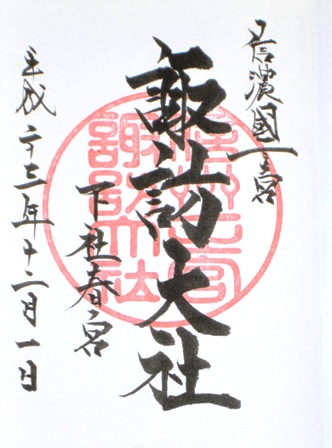 信濃國一之宮
諏訪大社
下社春宮
平成二十三年十二月一日